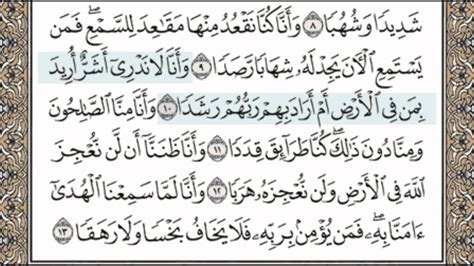 شَدِيدًا وَشُهُبًا ٨ وَأَنَّا كُنَّا نَقْعُدُ مِنْهَا مَقَٰعِدَ لِلسَّمْعِ ۖ فَمَن
يَسْتَمِعِ ٱلْأٓنَ يَجِدْ لَهُۥ شِهَابًا رَّصَدًا ٩ وَأَنَّا لَا نَدْرِىٓ أَشَرٌّ أُرِيدَ
بِمَن فِى ٱلْأَرْضِ أَمْ أَرَادَ بِهِمْ رَبُّهُمْ رَشَدًا ١٠ وَأَنَّا مِنَّا ٱلصَّٰلِحُونَ
وَمِنَّا دُونَ ذَٰلِكَ ۖ كُنَّا طَرَآئِقَ قِدَدًا ١١ وَأَنَّا ظَنَنَّآ أَن لَّن نُّعْجِزَ
ٱللَّهَ فِى ٱلْأَرْضِ وَلَن نُّعْجِزَهُۥ هَرَبًا ١٢ وَأَنَّا لَمَّا سَمِعْنَا ٱلْهُدَىٰٓ
ءَامَنَّا بِهِۦ ۖ فَمَن يُؤْمِنۢ بِرَبِّهِۦ فَلَا يَخَافُ بَخْسًا وَلَا رَهَقًا ١٣